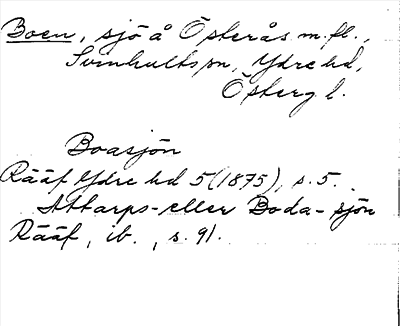 Boen, sjö å Österås m.fl.,
Svinhults sn, Ydre hd,
Österg. l.
Boasjön
Rääf Ydre hd 5 (1875), s. 5.
Attarps- eller Boda-sjön
Rääf, ib., s. 91.